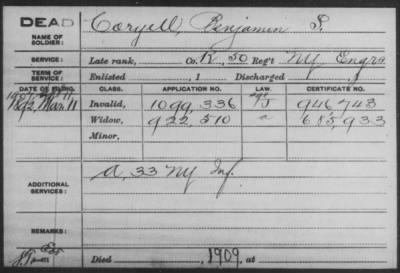 DEAD
NAME OF SOLDIER: Coryell, Benjamin S.
SERVICE: Late rank, Co. K, 50 Reg't NY Engrs
TERM OF SERVICE: Enlisted , 1 Discharged , 1
DATE OF FILING. CLASS. APPLICATION NO. LAW. CERTIFICATE NO.
1892, Mar. 11 Invalid, 1099,336 946743
Widow, 922,510 a 685,933
Minor,
ADDITIONAL SERVICES: A, 33 NY Inf.
REMARKS:
Died , 1909, at